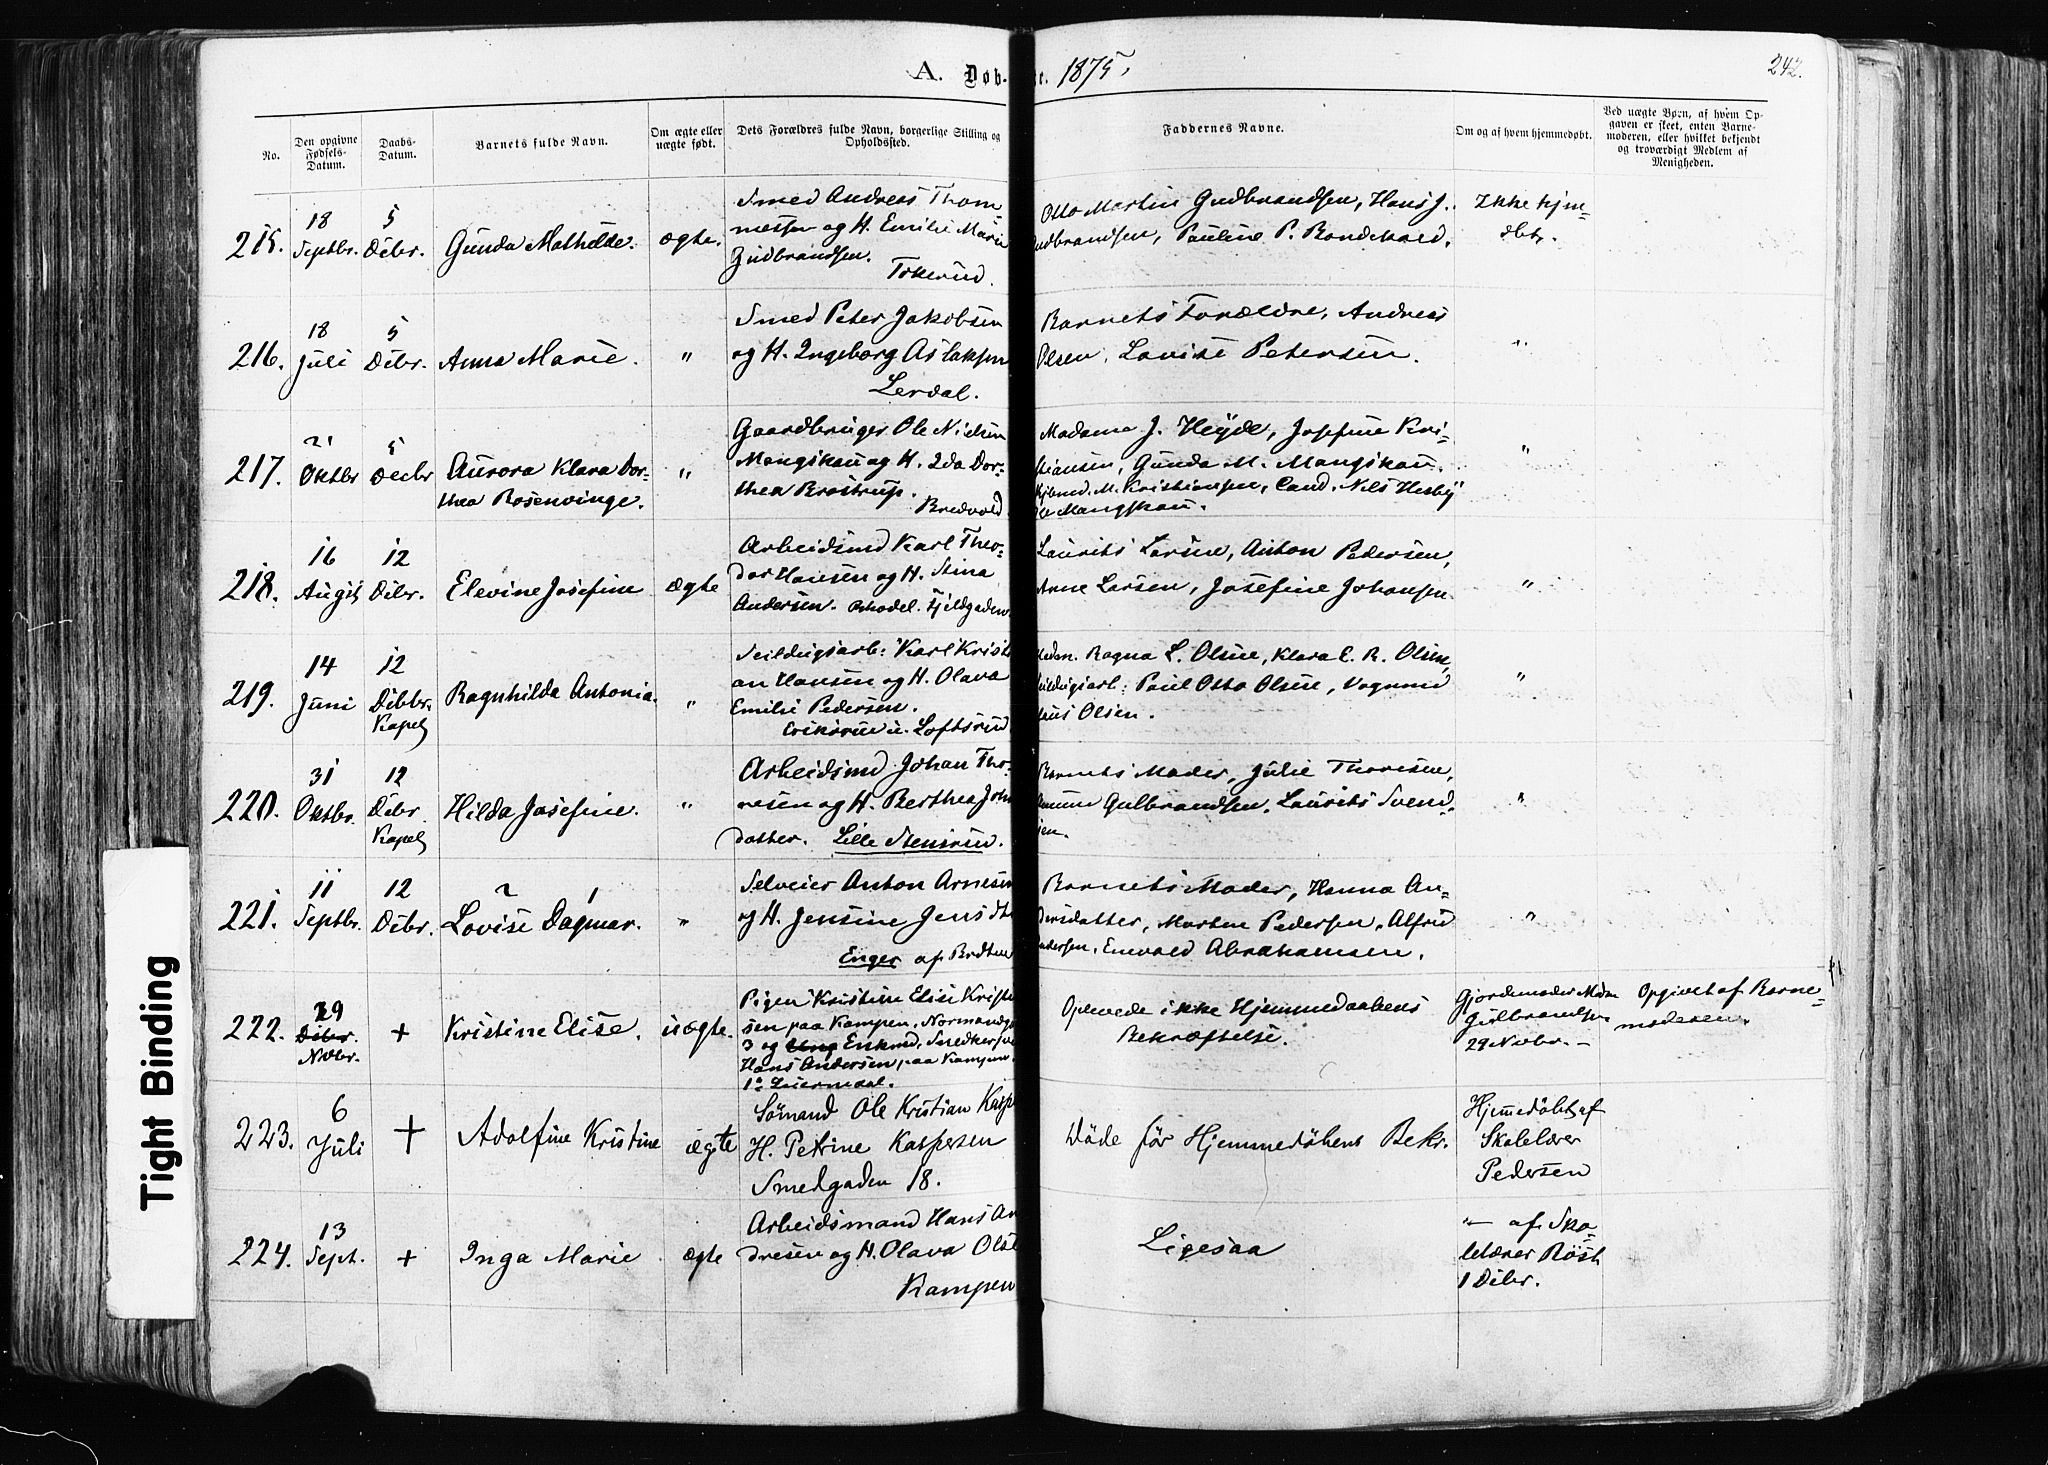 A. Døb- te. 1875.
242.
No.
Den opgivne Fødsels-Datum.
Daabs-Datum.
Barnets fulde Navn.
Om ægte eller uægte født.
Dets Forældres fulde Navn, borgerlige Stilling og Opholdssted.
Faddernes Navne.
Om og af hvem hjemmedøbt.
Ved uægte Børn, af hvem Opgaven er skeet, enten Barnemoderen, eller hvilket bekjendt og troværdigt Medlem af Menigheden.
215.
18 Septbr.
5 Debr.
Gunda Mathilde.
ægte.
Smed Andreas Thom
messen og H. Emilie Marie
Gudbrandsen.
Tokerud.
Otto Martin Gudbrandsen, Hans J.
Gudbrandsen, Pauline P.
Ikke hjm-
dbt.
216.
18 Juli
5 Debr.
Anna Marie.
"
Smed Peter Jakobsen
og H. Ingeborg Aslaksen
Lerdal.
Barnets Forældre, Andreas
Olsen, Lovise Petersen.
"
217.
21 Oktbr
5 Decbr
Aurora Klara Dor-
thea Rosenvinge.
"
Gaardbruger Ole Nielsen
Mangskau og H. Ida Dor-
thea Brostrup.
Bredvold
Madame J. Heyde, Josefine Kri-
stiansen, Gunda M. Mangskau.
M. Kristiansen, Cand. Nils Hesby
Mangskau.
"
218.
16 Augst
12 Debr.
Elevine Josefine
ægte
Arbeidsmd Karl Theo-
dor Hansen og H. Stina
Andersen. Fjeldgaden
Laurits Larsen, Anton Pedersen,
Anne Larsen, Josefine Johansen
"
219.
14 Juni
12 Debbr.
Kapel
Ragnhilda Antonia.
"
Seildugsarb: Karl Kristi
an Hansen og H. Olava
Emilie Pedersen.
Eriksrue u. Loftsrud
Ragna L. Olsen, Klara E. R. Olsen,
Seildugsarb: Paul Otto Olsen, Vognmd
Olsen.
"
220.
31 Oktbr.
12 Debr.
Kapel
Hilda Josefine.
"
Arbeidsmd Johan Tho-
resen og H. Berthea Joh
datter. Lille Stensrud.
Barnets Moder, Julie Thoresen,
Gulbrandsen, Laurits Svend-
sen.
"
221.
11 Septbr.
12 Debr.
2 1
Lovise Dagmar.
"
Selveier Anton Arnesen
og H. Jensine Jensdt
Enger af
Barnets Moder, Hanna An-
dersdatter, Morten Pedersen, Alfred
Andersen, Enevold Abrahamsen.
"
222.
29 Debr.
Novbr.
+
Kristine Elise.
uægte.
Pigen Kristine Elise Kriste
sen paa Kampen, Normandga
3 og Ung Enkmd. Snedkersve
Hans Andersen, paa Kampen.
1° Leiermaal.
Oplevede ikke Hjemmedaabens
Bekræftelse.
Gjordemoder Mdm
Gulbrandsen
29 Novbr. –
Opgivet af Barne-
moderen.
223.
6 Juli
+
Adolfine Kristine
ægte
Sömand Ole Kristian Kasp
H. Petrine Kaspersen
Smedgaden 18.
Döde før Hjemmedöbens Bekr.
Hjemmedöbt af
Skolelærer
Pedersen
224.
13 Sept.
+
Inga Marie
ægte
Arbeidsmand Hans An
dresen og H. Olava Olse
Kampen
Ligesaa
"– af Sko-
lelærer Röst
1 Debr.
Tight Binding